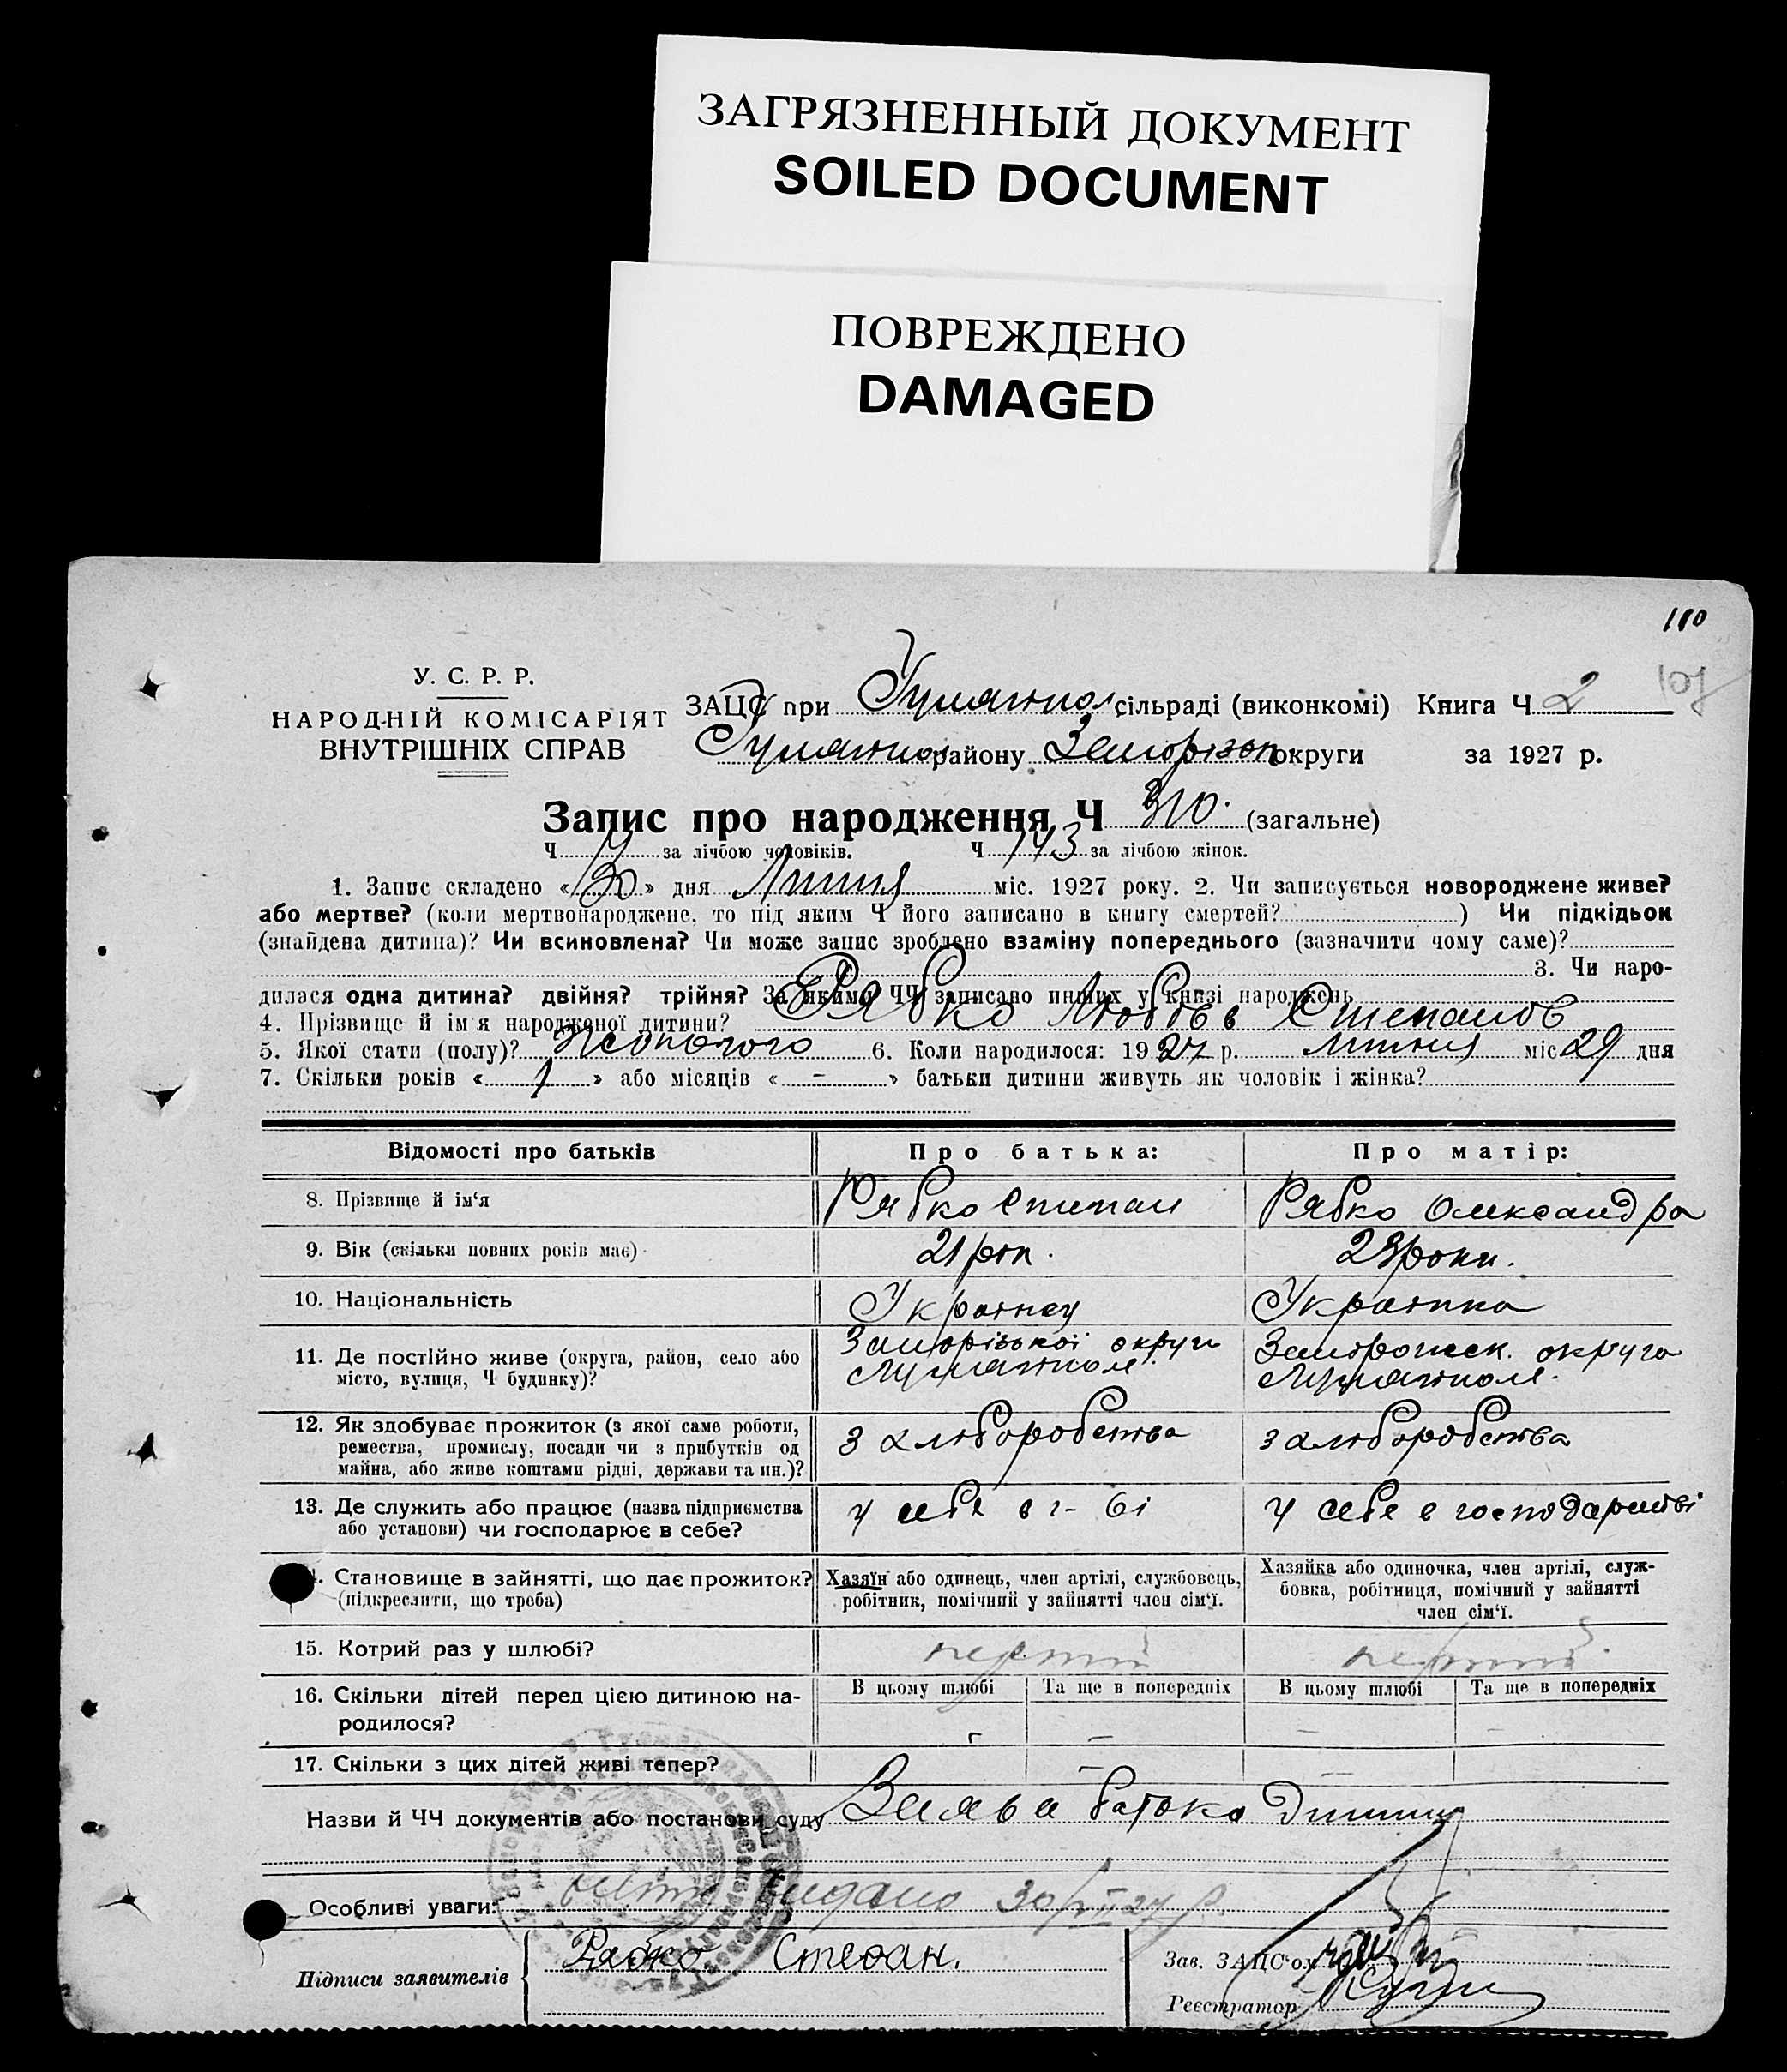 ЗАГРЯЗНЕННЫЙ ДОКУМЕНТ
SOILED DOCUMENT
ПОВРЕЖДЕНО
DAMAGED
110
У. С. Р. Р.
НАРОДНІЙ КОМІСАРІЯТ
ВНУТРІШНІХ СПРАВ
ЗАЦС при Гуляйпол. сільраді (виконкомі) Книга Ч 2
Гуляйпол району Запоріз округи за 1927 р.
Запис про народження Ч 310. (загальне)
Ч за лічбою чоловіків. Ч 143 за лічбою жінок.
1. Запис складено «30» дня Липня міс. 1927 року. 2. Чи записується новороджене живе?
або мертве? (коли мертвонароджене, то під яким Ч його записано в книгу смертей? ) Чи підкідьок
(знайдена дитина)? Чи всиновлена? Чи може запис зроблено взаміну попереднього (зазначити чому саме)?
3. Чи наро-
дилася одна дитина? двійня? трійня? За якими ЧЧ записано инших у книзі народжень
4. Прізвище й ім'я народженої дитини? Рябко Любовь Степанов
5. Якої стати (полу)? Жіночого 6. Коли народилося: 1927 р. липня міс 29 дня
7. Скільки років «1» або місяців «-» батьки дитини живуть як чоловік і жінка?
Відомості про батьків Про батька: Про матір:
8. Прізвище й ім'я Рябко Степан Рябко Олександра
9. Вік (скільки повних років має) 21 рік. 23 роки.
10. Національність Українец Українка
11. Де постійно живе (округа, район, село або
місто, вулиця, Ч будинку)?
Запорізької округи
Гуляйполе.
Запорожск. округа
Гуляйполе.
12. Як здобуває прожиток (з якої саме роботи,
ремества, промислу, посади чи з прибутків од
майна, або живе коштами рідні, держави та ин.)?
з хлюборобства з хлюборобства
13. Де служить або працює (назва підприємства
або установи) чи господарює в себе?
у себе в г-ві у себе в господарстві
Становище в зайнятті, що дає прожиток?
(підкреслити, що треба)
Хазяїн або одинець, член артілі, службовець,
робітник, помічний у зайнятті член сім'ї.
Хазяйка або одиночка, член артілі, служ-
бовка, робітниця, помічний у зайнятті
член сім'ї.
15. Котрий раз у шлюбі? перший перший.
16. Скільки дітей перед цією дитиною на-
родилося?
В цьому шлюбі Та ще в попередніх В цьому шлюбі Та ще в попередніх
- - - -
17. Скільки з цих дітей живі тепер? - -
Назви й ЧЧ документів або постанови суду Заява батька дитини
Особливі уваги: видано 30/VII 27 р.
Підписи заявителів Рябко Степан.
Зав. ЗАЦС'ом
Реєстратор